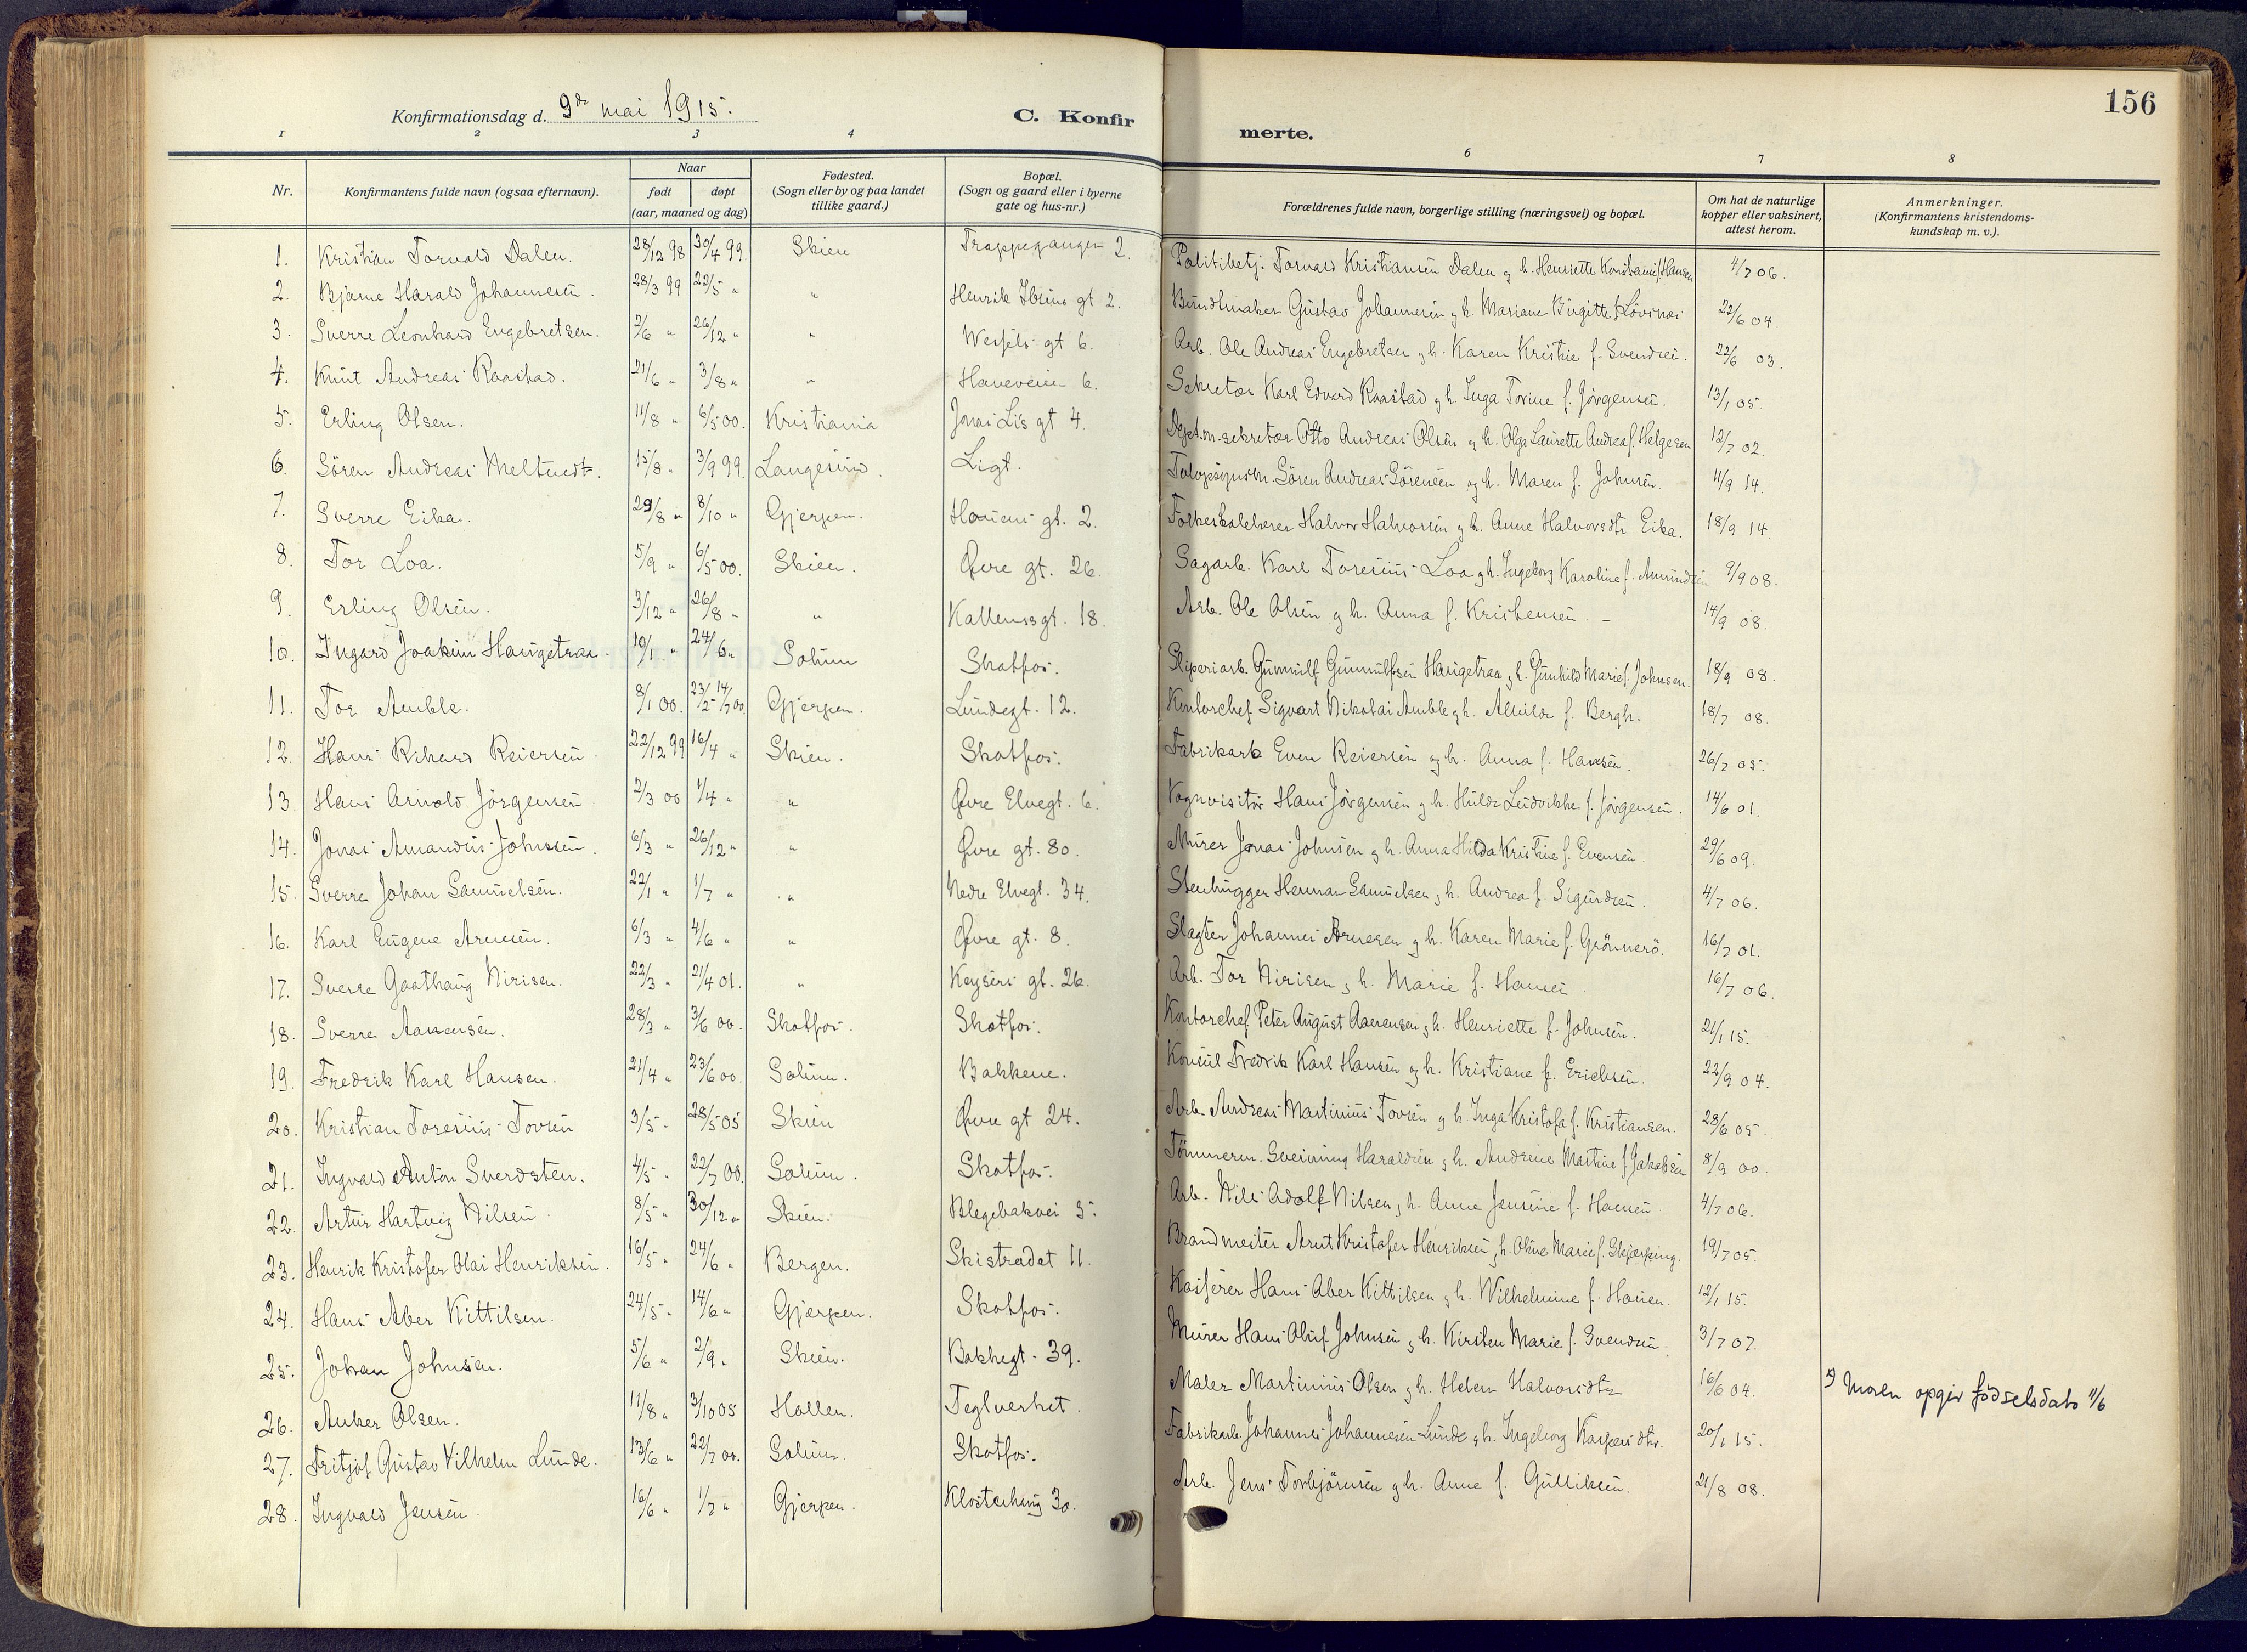 156
Konfirmationsdag d. 9de mai 1915.
C. Konfir merte.
1 2 3 4 6 7 8
Nr.
Konfirmantens fulde navn (ogsaa efternavn).
Naar
født døpt
(aar, maaned og dag)
Fødested.
(Sogn eller by og paa landet
tillike gaard.)
Bopæl.
(Sogn og gaard eller i byerne
gate og hus-nr.)
Forældrenes fulde navn, borgerlige stilling (næringsvei) og bopæl.
Om hat de naturlige
kopper eller vaksinert,
attest herom.
Anmerkninger.
(Konfirmantens kristendoms-
kundskap m. v.).
1. Kristian Torvald Dalen. 28/12 98 30/4 99. Skien Trappegangen 2. Politibetj. Torvald Kristiansen Dalen g h. Henriette f. Hansen 4/7 06.
2. Bjarne Harald Johannesen. 28/3 99 22/5 " " Henrik Ibsens gt 2. Bundtmaker Gustav Johannesen g h. Mariane Birgitte f. 22/6 04.
3. Sverre Leonhard Engebretsen. 2/6 " 26/12 " " Wessels gt 6. Arb. Ole Andreas Engebretsen g h. Karen Kristie f. Svendsen. 22/6 03.
4. Knut Andreas Raastad. 21/6 " 3/8 " " Haveveien 6. Sekretær Karl Edvard Raastad g h. Inga Torine f. Jørgensen. 13/1 05.
5. Erling Olsen. 11/8 " 6/5 00. Kristiania Jonas Lis gt 4. Otto Andreas Olsen g h. Olga Laurette Andrea f. Helgesen 12/7 02.
6. Sören Andreas Meltvedt. 15/8 " 3/9 99. Langesund. Ligt. Sören Andreas Sörensen og h. Maren f. Johnsen. 11/9 14.
7. Sverre Eika. 29/8 " 8/10 " Gjerpen. Hansens gt. 2. Folkeskolelærer Halvor Halvorsen g h. Anne Halvorsdtr Eika. 18/9 14.
8. Tor Loa. 5/9 " 6/5 00. Skien. Øvre gt. 26. Sagarb. Karl Toresius Loa g h. Ingeborg Karoline f. Amundsen 9/9 08.
9. Erling Olsen. 3/12 " 26/8 " " Kallemsgt. 18. Arb. Ole Olsen g h. Anna f. Kristensen. 14/9 08.
10. Ingard Joakim Haugetraa. 10/1 " 24/6 " Solum Skotfos. Sliperiarb. Gunnulf Gunnulfsen Haugetraa g h. Gunhild Marie f. Johnsen. 18/9 08.
11. Tor Amble. 8/1 00. 23/2 14/7 00. Gjerpen. Lundegt. 12. Kontorchef Sigvart Nikolai Amble g h. Alvilde f. Bergh. 18/7 08.
12. Hans Rikard Reiersen. 22/12 99 16/4 " Skien. Skotfos. Fabrikarb Even Reiersen og h. Anna f. Hansen. 26/7 05.
13. Hans Arnold Jörgensen. 2/3 00 1/4 " " Øvre Elvegt. 6. Vognvisitör Hans Jörgensen g h. Hulda Ludvikke f. Jörgensen. 14/6 01.
14. Jonas Amandus Johnsen. 6/3 " 26/12 " " Øvre gt. 80. Murer Jonas Johnsen g h. Anna Hilda Kristine f. Evensen. 29/6 09.
15. Sverre Johan Samuelsen. 22/1 " 1/7 " " Nedre Elvegt. 34. Stenhugger Herman Samuelsen g h. Andrea f. Sigurdsen. 4/7 06.
16. Karl Eugene Arnesen. 6/3 " 4/6 " " Øvre gt. 8. Slagter Johannes Arnesen g h. Karen Marie f. Grönnerö. 16/7 01.
17. Sverre Gaathaug Nirisen. 22/3 " 21/4 01. " Keysers gt. 26. Arb. Tor Nirisen g h. Marie f. Hansen 16/7 06.
18. Sverre Aanensen. 28/3 " 3/6 00. Skotfos. Skotfos. Kontorchef Peter August Aanensen g h. Henriette f. Johnsen. 21/1 15.
19. Fredrik Karl Hansen. 21/4 " 23/6 00. Solum. Bakkene. Konsul Fredrik Karl Hansen og h. Kristiane f. Erichsen. 22/9 04.
20. Kristian Toresius Tovsen 3/5 " 28/5 05 Skien Øvre gt 24. Arb. Andreas Martinius Tovsen g h. Inga Kristofa f. Kristiansen. 28/6 05.
21. Ingvald Anton Sverdsten. 4/5 " 22/7 00. Solum. Skotfos. Tömmerm. Sveinung Haraldsen g h. Andreine Martine f. Jakobsen 8/9 00.
22. Artur Hartvig Nilsen. 8/5 " 30/12 " Skien. Blegebakvei 5. Arb. Nils Adolf Nilsen g h. Anne Jensine f. Hansen. 4/7 06.
23. Henrik Kristofer Olai Henriksen. 16/5 " 24/6 " Bergen. Skistredet 11. Brandmester Arnt Kristofer Henriksen g h. Oline Marie f. Skjerping. 19/7 05.
24. Hans Aber Kittilsen. 24/5 " 14/6 " Gjerpen. Skotfos. Kasserer Hans Aber Kittilsen g h. Wilhelmine f. Hansen. 12/1 15.
25. Johan Johnsen. 5/6 " 2/9 " Skien. Bakkegt. 39. Murer Hans Oluf Johnsen g h. Kirsten Marie f. Svendsen. 3/7 07.
26. Anker Olsen. 11/8 " 3/10 05 Hollen. Teglverket. Maler Martinius Olsen g h. Helene Halvorsdtr 16/6 04. Moren opgir fødselsdato 11/6
27. Fritjof Gustav Vilhelm Lunde. 13/6 " 22/7 00. Solum. Skotfos. Fabrikarb. Johannes Johannesen Lunde g h. Ingeborg Kaspersdtr. 20/1 15.
28. Ingvald Jensen. 16/6 " 1/7 " Gjerpen. Klosterhaug 30. Arb. Jens Torbjörnsen g h. Anne f. Gulliksen. 21/8 08.